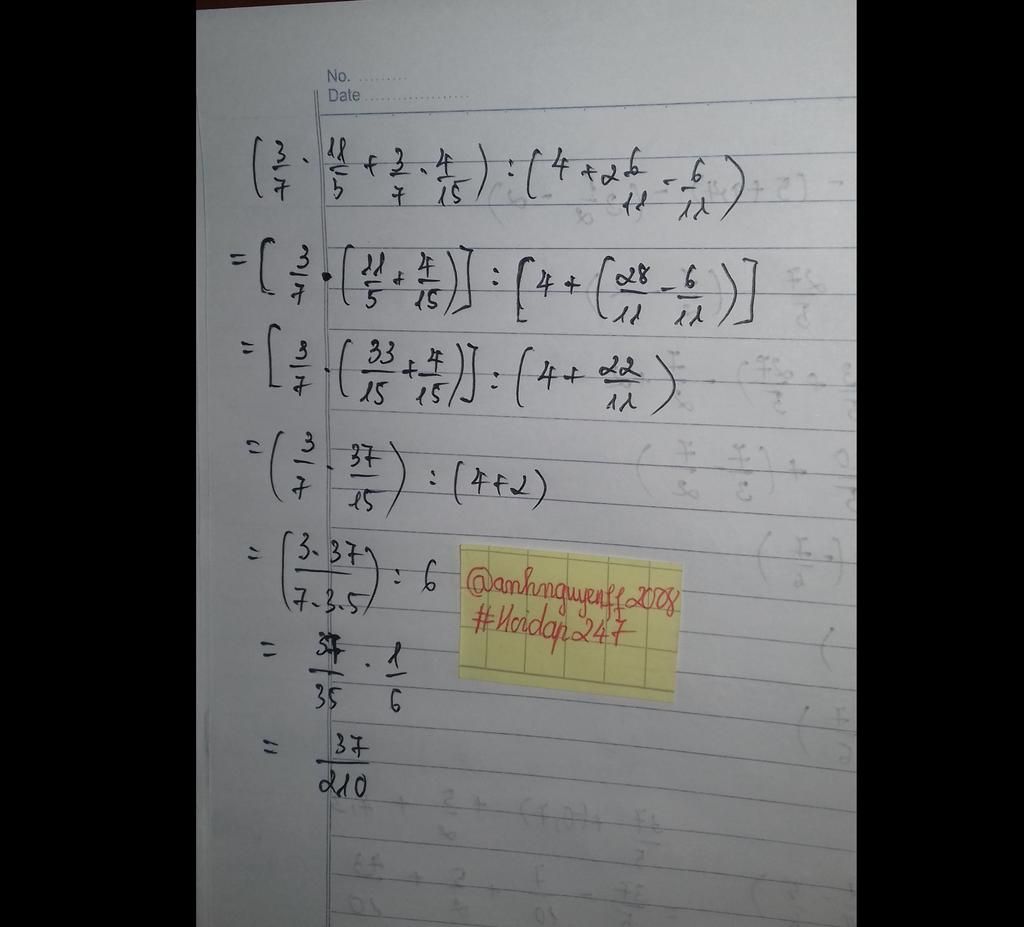 No. .........
Date ...................
(3/7 · 11/5 + 3/7 · 4/15) : (4 + 2 6/11 - 6/11)
= [3/7 · (11/5 + 4/15)] : [4 + (28/11 - 6/11)]
= [3/7 · (33/15 + 4/15)] : (4 + 22/11)
= (3/7 · 37/15) : (4+2)
= (3·37/7·3·5) : 6
= 37/35 · 1/6
= 37/210
@anhnguyenff2008
#Hoidap247